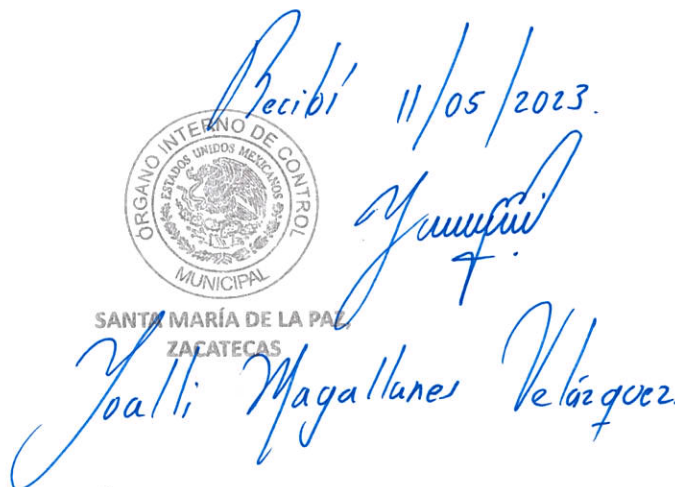 Recibí 11/05/2023.
ÓRGANO INTERNO DE CONTROL
ESTADOS UNIDOS MEXICANOS
MUNICIPAL
SANTA MARÍA DE LA PAZ,
ZACATECAS
Yoalli Magallanes Velázquez.